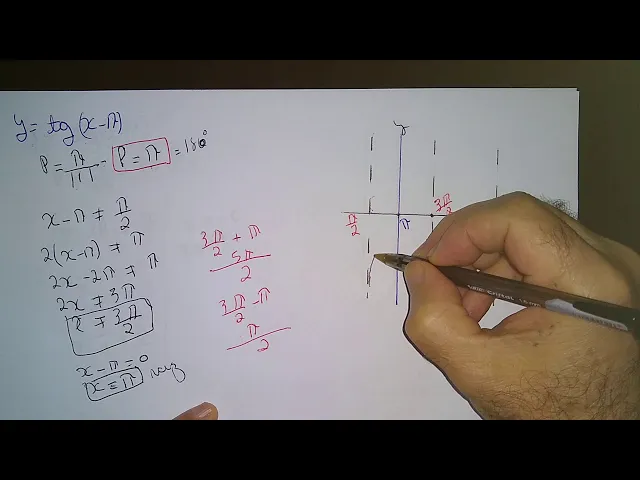 y = tg(x-π)
P = π/|1| - P = π = 180°
x-π ≠ π/2
2(x-π) ≠ π
2x-2π ≠ π
2x ≠ 3π
x ≠ 3π/2
x-π = 0
x = π raiz
3π/2 + π
5π/2
3π/2 - π
π/2
y
π/2 π 3π/2